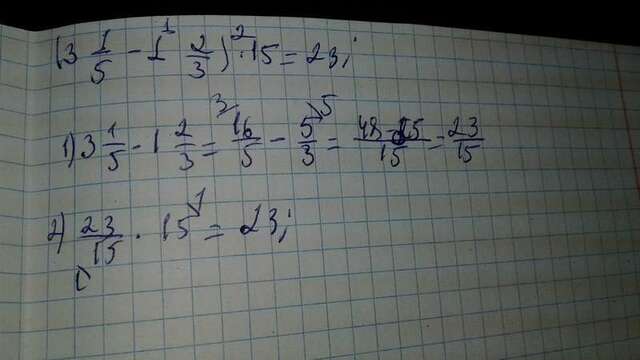 (3 1/5 - 1 2/3) · 15 = 23;
1) 3 1/5 - 1 2/3 = 16/5 - 5/3 = 48-25/15 = 23/15
2) 23/15 · 15 = 23;